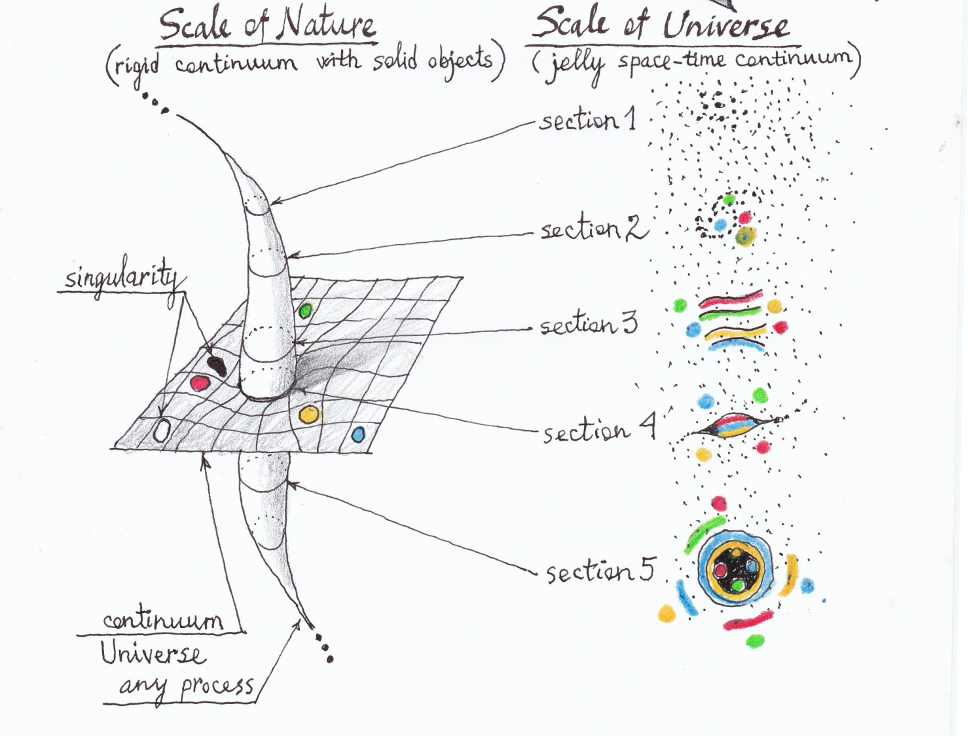 Scale of Nature
(rigid continuum with solid objects)
Scale of Universe
(jelly space-time continuum)
section 1
section 2
singularity
section 3
section 4
section 5
continuum
Universe
any process